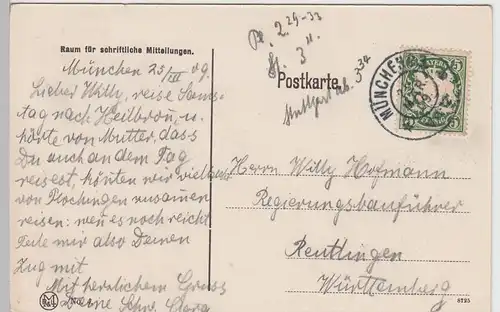 Raum für schriftliche Mitteilungen.
München 25/III 09.
Lieber Willy, reise Sams-
tag nach Heilbron, u.
hörte von Mutter, dass
Du auch an dem Tag
reisest, könten wir vielleicht
von Plochingen zusamen
reisen: wen es noch reicht
teile mir also Deinen
Zug mit
Mit herzlichem Gruss
Deine Schw. Clara
Pl. 2 29-33
3
Stuttgart ab. 5 34
Postkarte
MÜNCHEN
BAYERN
5
Herrn Willy Hofmann
Regierungsbauführer
Reutlingen
Württemberg
8725